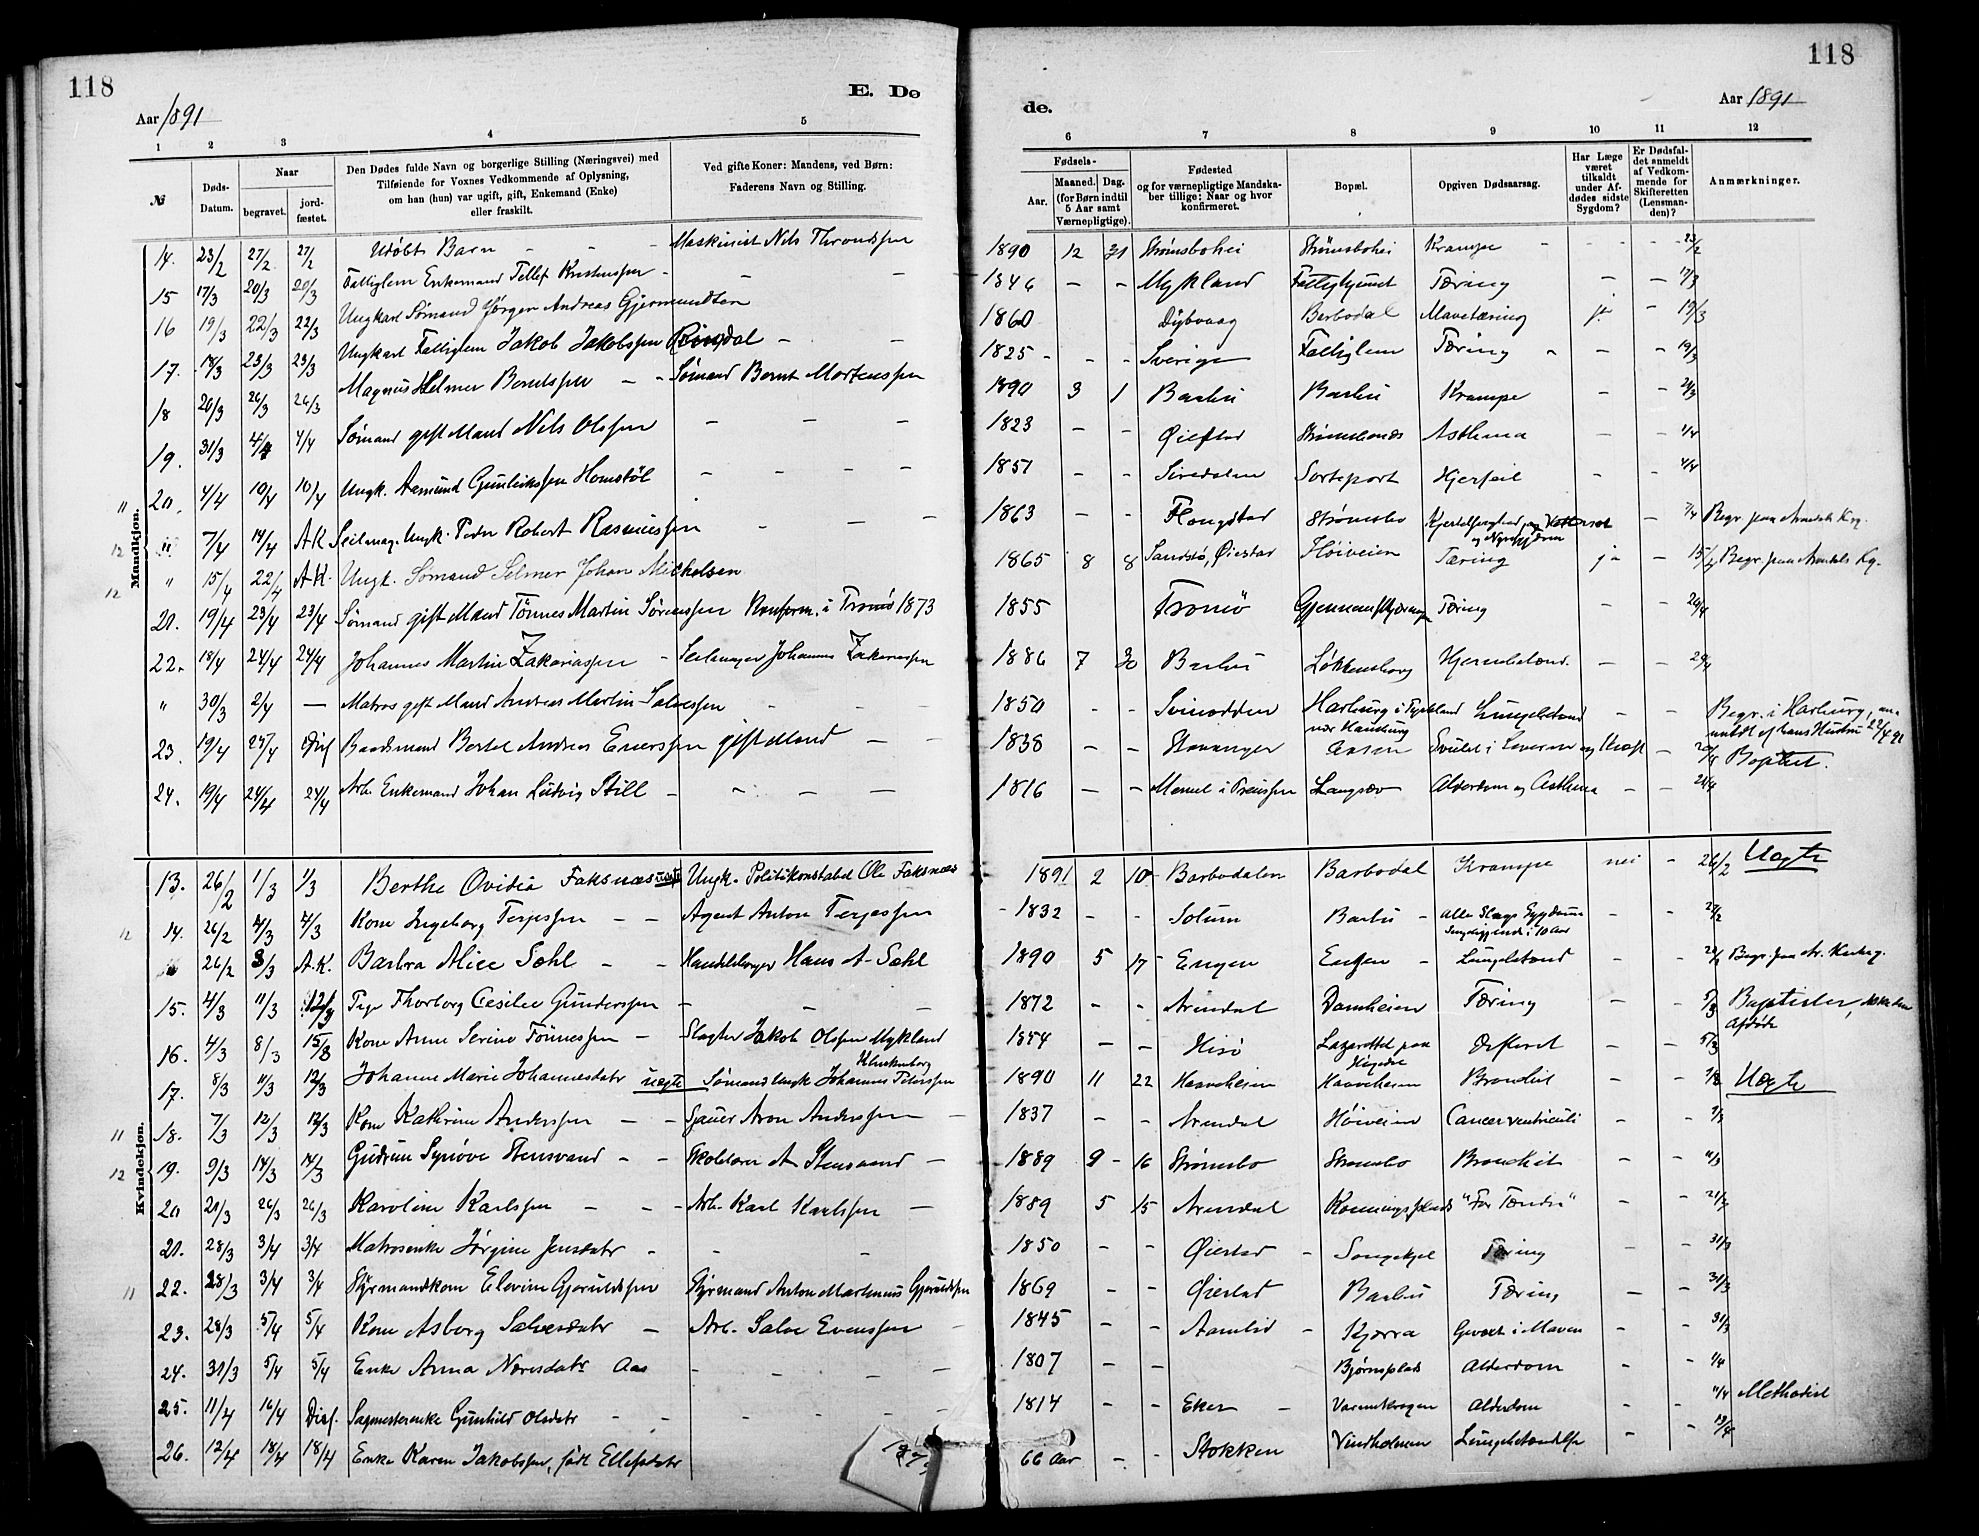 118
118
E. Dø
de.
Aar 1891
Aar 1891
1 2 3 4 5 6 7 8 9 10 11 12
№ Døds-Datum. Naar begravet. jord-fæstet. Den Dødes fulde Navn og borgerlige Stilling (Næringsvei) med Tilføiende for Voxnes Vedkommende af Oplysning, om han (hun) var ugift, gift, Enkemand (Enke) eller fraskilt. Ved gifte Koner: Mandens, ved Børn: Faderens Navn og Stilling. Fødsels- Aar. Maaned. Dag. (for Børn indtil 5 Aar samt Værnepligtige). Fødested og for værnepligtige Mandskaber tillige: Naar og hvor konfirmeret. Bopæl. Opgiven Dødsaarsag. Har Læge været tilkaldt under Afdødes sidste Sygdom? Er Dødsfaldet anmeldt af Vedkommende for Skifteretten (Lensmanden)? Anmærkninger.
Mandkjøn.
14. 23/2 27/2 27/2 Udøbt Barn - - - Maskinist Nils Throndsen 1890 12 31 Strømsbohei Strømsbohei Krampe - - - - 23/2
15 17/3 20/3 20/3 Fattiglem Enkemand Tellef Kristenssen - - - 1846 - - Mykland Fattighuset Tæring - - 17/3
16 19/3 22/3 22/3 Ungkarl Sømand Jørgen Andreas Gjermundsen 1860 Dybvaag Barbodal Mavetæring ja - 19/3
17. 18/3 23/3 23/3 Ungkarl Fattiglem Jakob Jakobssen - - 1825 - - - Sverige Fattiglem Tæring - - - 19/3
18 20/3 26/3 26/3 Magnus Helmer Berntssen - - Sømand Bernt Mortenssen 1890 3 1 Barbu Barbu Krampe - - 21/3
19. 31/3 4/4 4/4 Sømand gift Mand Nils Olssen - - - 1823 - - Øiestad Strømsbonæs Asthma - - 1/4
20. 4/4 10/4 10/4 Ungk. Aamund Gunleikssen Homstøl - - - - 1851 - - Siredalen Sorteport Hjerfeil - - 4/4
11 12 " 7/4 14/4 A K Seilmag. Ungk. Peder Robert Rasmussen - - - 1863 - - Flangstad Strømsbo - 7/4 Begr. paa Arendals Kg.
12 " 15/4 22/4 A.K. Ungk. Sømand Selmer Johan Mickelsen 1865 8 8 Sandsø, Øiestad Høiveien Tæring ja - 15/4 Begr. paa Arendals Kg.
21. 19/4 23/4 23/4 Sømand gift Mand Tønnes Martin Sørenssen Konform. i Tromø 1873 1855 Tromö Gjennemskjæringen Tæring - - 20/4
22. 18/4 24/4 24/4 Johannes Martin Zakariassen - Seilmager Johannes Zakariassen 1886 7 30 Barbu Løkkensborg Hjernebetænd. - - 20/4
" 30/3 2/4 — Matros gift Mand Andreas Martin Salvessen - - 1850 - - Svinodden Harburg i Tyskland nær Hamburg Lungebetænd - - Begr. i Harburg, anmeldt af hans Hustru 22/4 91
23. 19/4 25/4 Diss Baadsmand Bertel Andreas Enerssen gift Mand - - 1838 - - Stavanger Aasen Svulst i Leveren og Kræft - 20/4 Baptist.
24. 19/4 24/4 24/4 Arb. Enkemand Johan Ludvig Still - - - - 1816 - - Memel i Preussen Langsæv Alderdom og Asthma - - 20/4
Kvindekjøn.
13. 26/2 1/3 1/3 Berthe Ovidia Faksnæs uægte Ungk. Politikonstabel Ole Faksnæs 1891 2 10 Barbodalen Barbodal Krampe nei - 26/2 Uægte
12 14. 26/2 4/3 4/3 Kone Ingeborg Terjessen - - Agent Anton Terjessen 1832 - - Solum Barbu - Alle Slags Sygdomme Sengeliggende i 10 Aar - - 27/2
26/2 3/3 A.K. Barbra Alice Sæhl - - Handelsborger Hans A. Sæhl 1890 5 17 Engen Engen - Lungebetænd - - Begr. paa Ar. Kirkeg.
15. 4/3 11/3 12/3 Pige Thorborg Cesilie Gunderssen - - - 1872 - - Arendal Damheien Tæring - - 5/3 Baptister, Afdøde
16. 4/3 8/3 15/3 Kone Anne Serine Tönnessen - Slagter Jakob Olssen Mykland 1854 - - Hisö Lazarettet paa - - 5/3
17. 8/3 11/3 12/3 Johanne Marie Johannesdatr uægte Sømand Ungk Johannes Peterssen 1890 11 22 Haaveheien Haaveheien Bronkit - - Uægte
11 18. 7/3 12/3 12/3 Kone Kathrine Anderssen - - Aron Anderssen - 1837 - - Arendal Høiveien Cancer ventriculi - -
12 19. 9/3 14/3 14/3 Gudrun Synöve Stensvand - - Skolelærer A Stensvand - 1889 9 - 16 Strømsbo Strømsbo Bronchit - -
20 21/3 26/3 26/3 Karoline Karlssen - - - Arb. Karl Karlssen - 1889 5 15 Arendal "For Tænder" - - 21/3
21. 28/3 3/4 3/4 Matrosenke Jörgine Jensdatr - - - 1850 - - Øiestad - Songekjel Tæring - - 31/3
11 22. 28/3 3/4 3/4 Styrmandkone Elevine Gjeruldssen Styrmand Anton Martinius Gjeruldssen 1869 - - Øiestad Barbu Tæring - - 31/3
23. 28/3 5/4 5/4 Kone Asborg Salvesdatr - Arb. Salve Evenssen - 1845 - - Aamlid - Kjærra Gevæxt i Maven - - 31/3
24. 31/3 5/4 5/4 Enke Anna Næresdatr Aas - - - - 1807 - - Bjørnsplads Alderdom - - 1/4
25. 11/4 16/4 Diss. Sagmesterenke Gunhild Olsdatr - - - - - - 1814 - - Eker - Varmekrogen Alderdom - - 11/4 Methodist
26. 12/4 18/4 18/4 Enke Karen Jakobssen, født Ellefsdatr 66 Aar - - Stokken Vindholmen Lungebetændelse - - 13/4